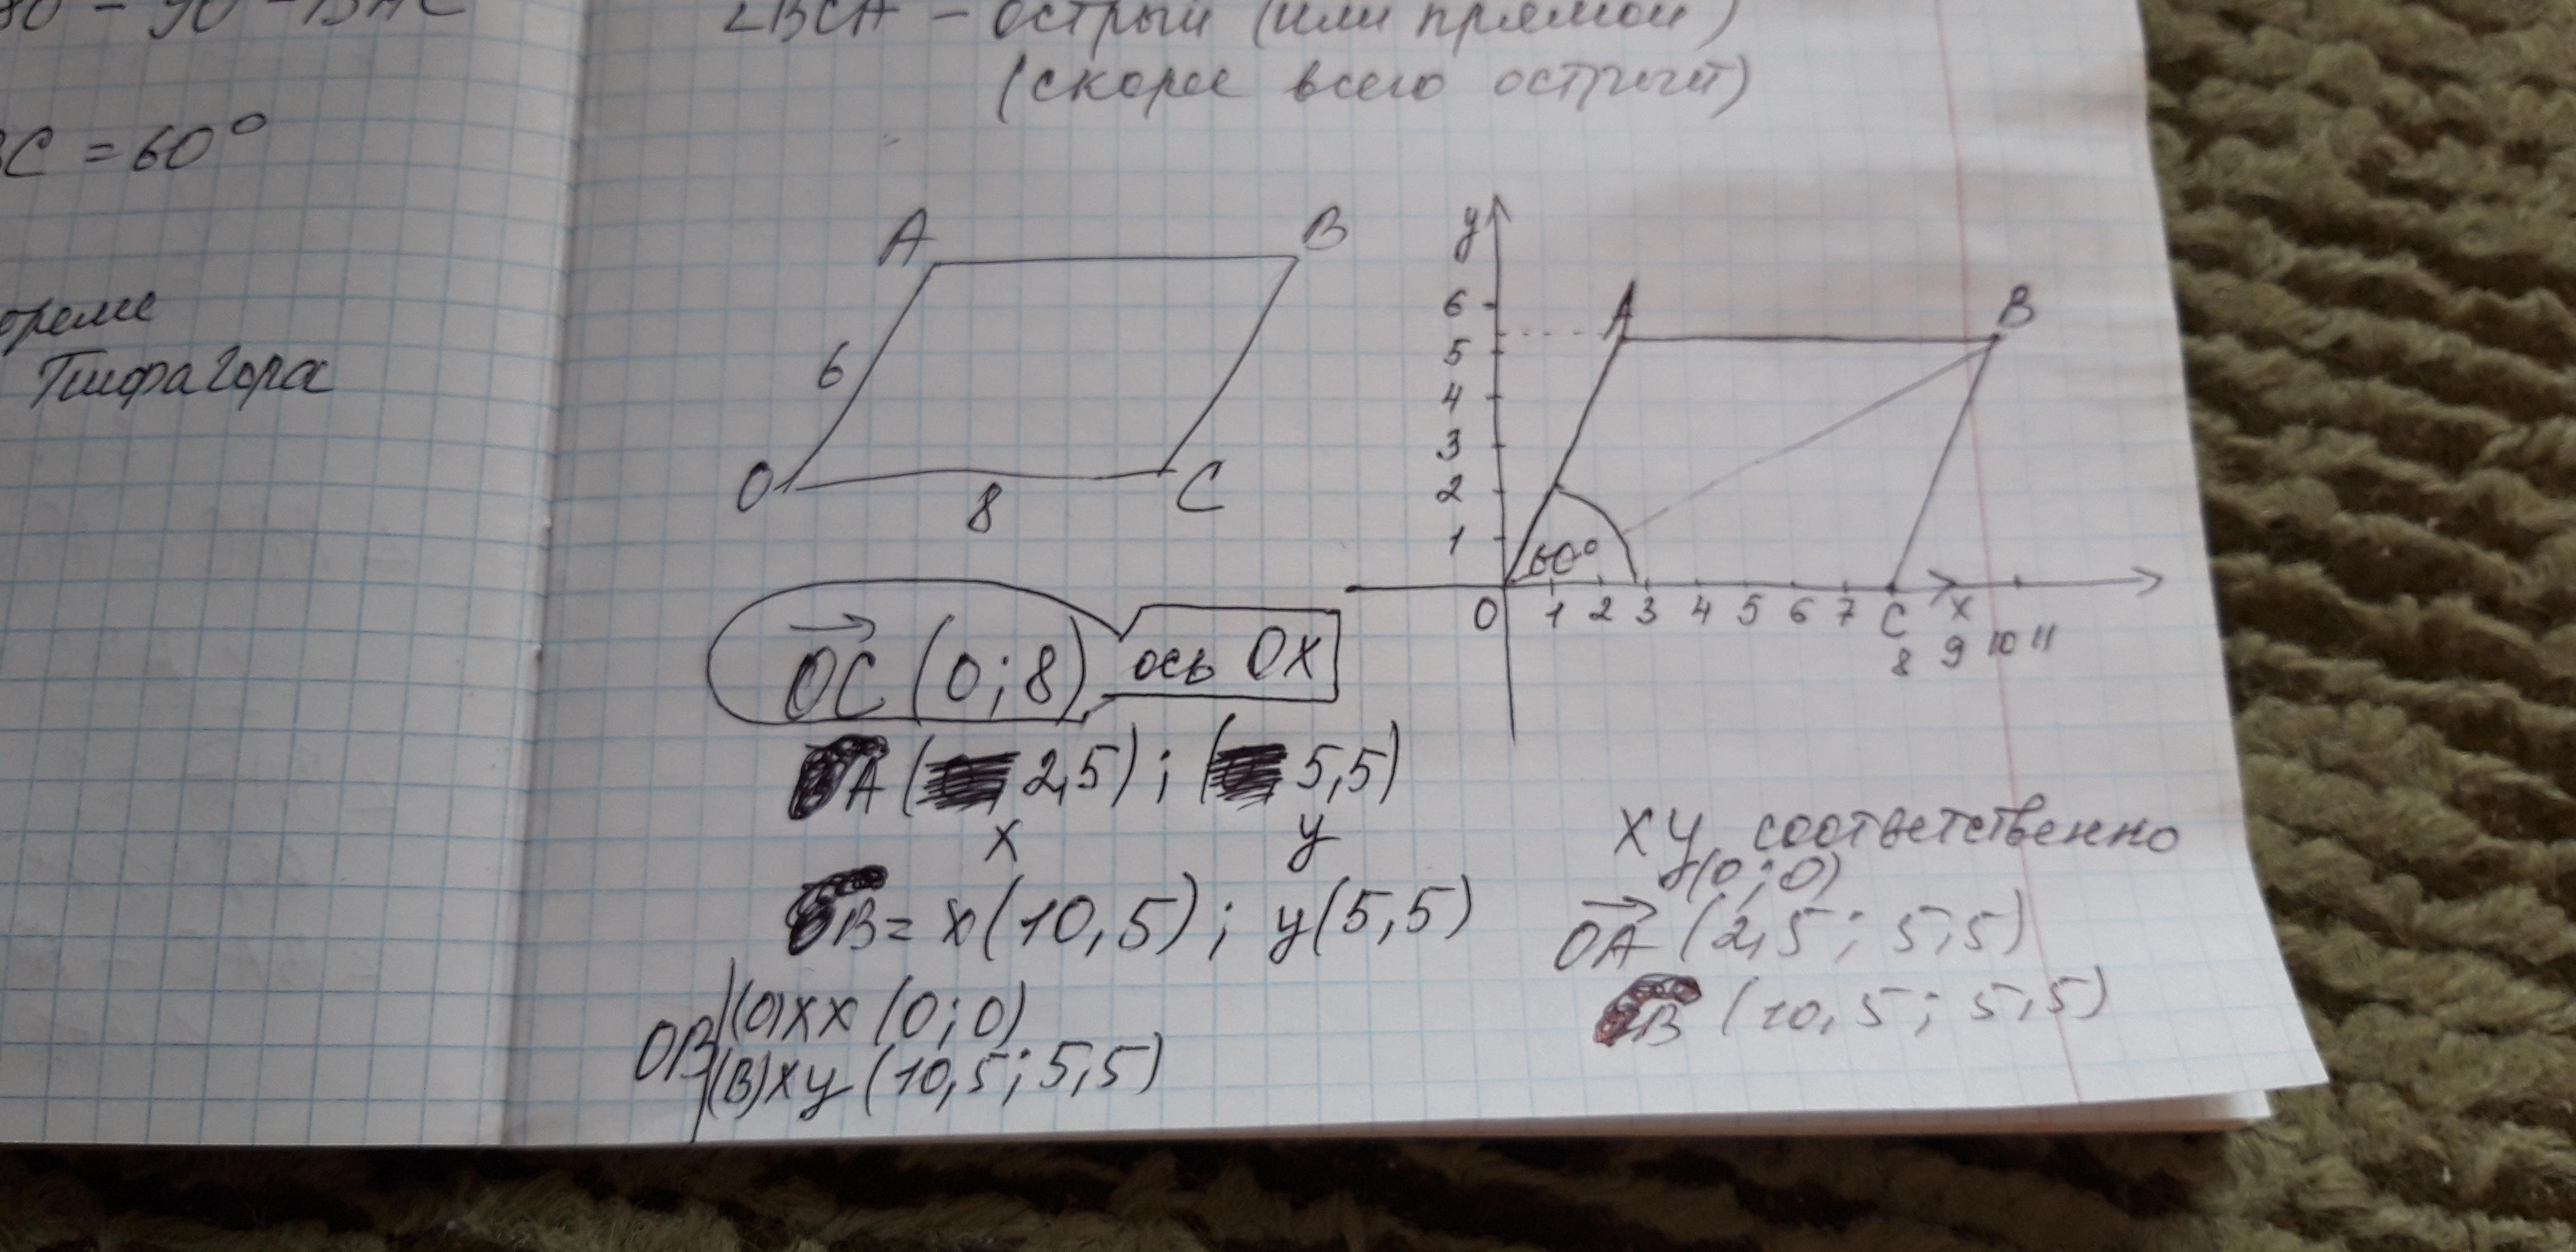 ∠BCA – острый (или прямой)
(скорее всего острый)
BC = 60°
ореме
Пифагора
A B
6
O C
8
y
6 A B
5
4
3
2
1
60°
O 1 2 3 4 5 6 7 C x
8 9 10 11
OC (0; 8) ось OX
A ( 2,5) ; ( 5,5)
x y
B = x(10,5) ; y(5,5)
OB (O)xx (0; 0)
(B)xy (10,5; 5,5)
XY соответственно
(0; 0)
OA (2,5; 5,5)
B (10,5; 5,5)